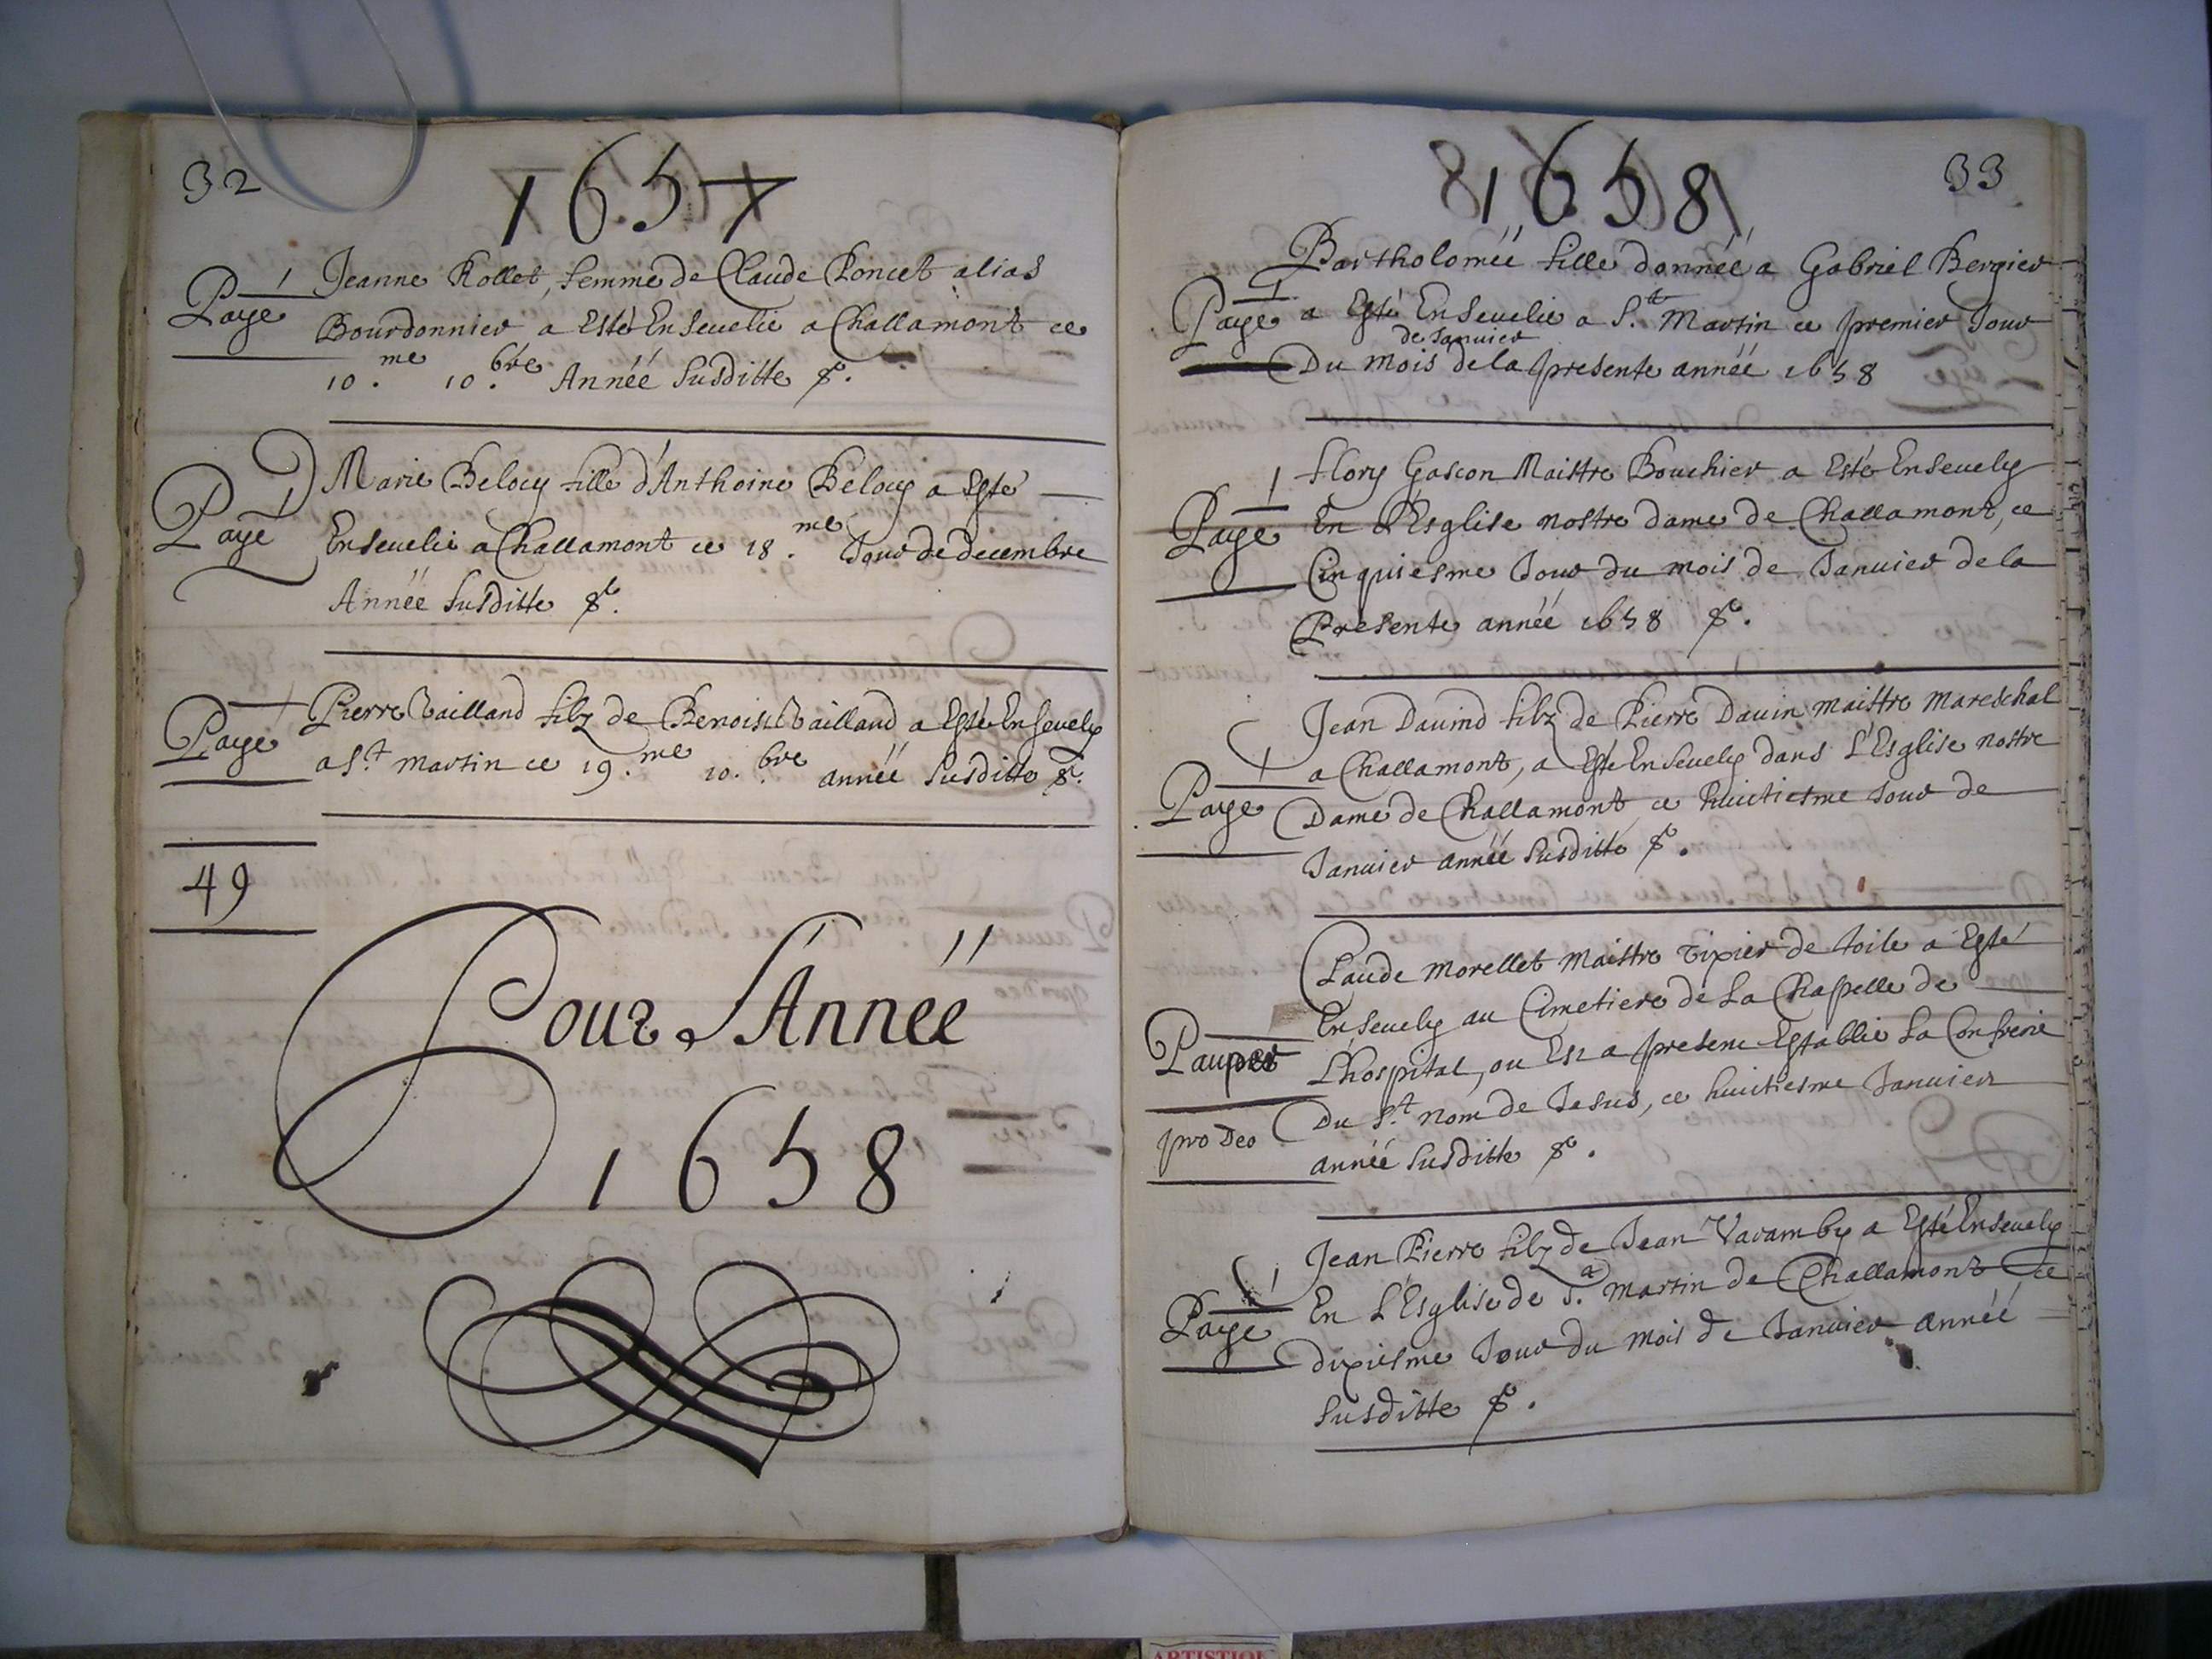 32
1657
Paye
Jeanne Rollet, femme de Claude Poncet alias
Bourdonnier a Esté Enseuelie a Challamont ce
10.me 10.bre Annéé susditte &.
Paye
Marie Belocy fille d'Anthoine Belocy a Esté
Enseuelie a Challamont ce 18.me Jour de decembre
Annéé susditte &.
Paye
Pierre Vailland filz de Benoist Vailland a Esté Enseuely
a St. martin ce 19.me 10.bre annéé susditte &.
49
Pour L'Année
1658
33
1658
Paye
Bartholoméé fille donnéé a Gabriel Bergier
a Esté Enseuelie a St. Martin ce premier Jour
de Januier
Du mois de la presente annéé 1658
Paye
flory Gascon Maistre Bouchier a Esté Enseuely
En L'Esglise nostre dame de Challamont, ce
Cinquiesme Jour du mois de Januier de la
Presente annéé 1658 &.
Paye
Jean Dauind filz de Pierre Dauin maistre mareschal
a Challamont, a Esté Enseuely dans L'Esglise nostre
Dame de Challamont ce huictiesme Jour de
Januier annéé susditte &.
Pauper
pro Deo
Claude morellet maistre tixier de toile a Esté
Enseuely au Cimetiere de La Chappelle de
L'hospital, ou Est a present Establie La Confrerie
Du St. nom de Jesus, ce huictiesme Januier
annéé susditte &.
Paye
Jean Pierre filz de Jean Varamby a Esté Enseuely
En L'Esglise de St. martin de Challamont ce
dixiesme Jour du mois de Januier annéé
susditte &.
ARTISTIQU